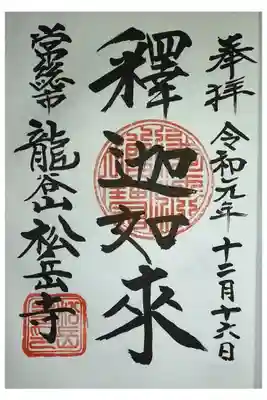 奉拝　令和元年　十二月十六日
釋迦如來
常総市　龍谷山　松岳寺